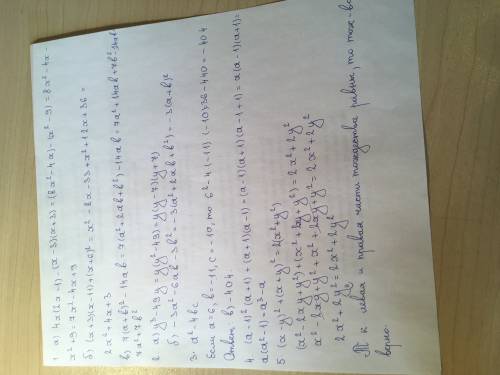 1. а) 4x(2x-1) - (x-3)(x+3) = (8x²-4x) - (x²-9) = 8x²-4x-
x²+9 = 7x²-4x+9
б) (x+3)(x-11)+(x+6)² = x²-8x-33+x²+12x+36 =
2x²+4x+3
в) 7(a+b)²-14ab = 7(a²+2ab+b²)-14ab = 7a²+14ab+7b²-14ab
7a²+7b²
2. а) y³-49y = y(y²-49) = y(y-7)(y+7)
б) -3a²-6ab-3b² = -3(a²+2ab+b²) = -3(a+b)²
3. a²-4bc
Если a=6, b=-11, c=-10, то 6²-4·(-11)·(-10)=36-440=-404
Ответ в)-404
4. (a-1)²(a+1)+(a+1)(a-1) = (a-1)(a+1)(a-1+1) = a(a-1)(a+1)=
a(a²-1)=a³-a
5 (x-y)²+(x+y)²=2(x²+y²)
(x²-2xy+y²)+(x²+2xy+y²)=2x²+2y²
x²-2xy+y²+x²+2xy+y²=2x²+2y²
2x²+2y²=2x²+2y²
Т к левая и правая части тождества равны, то тож-во
верно.